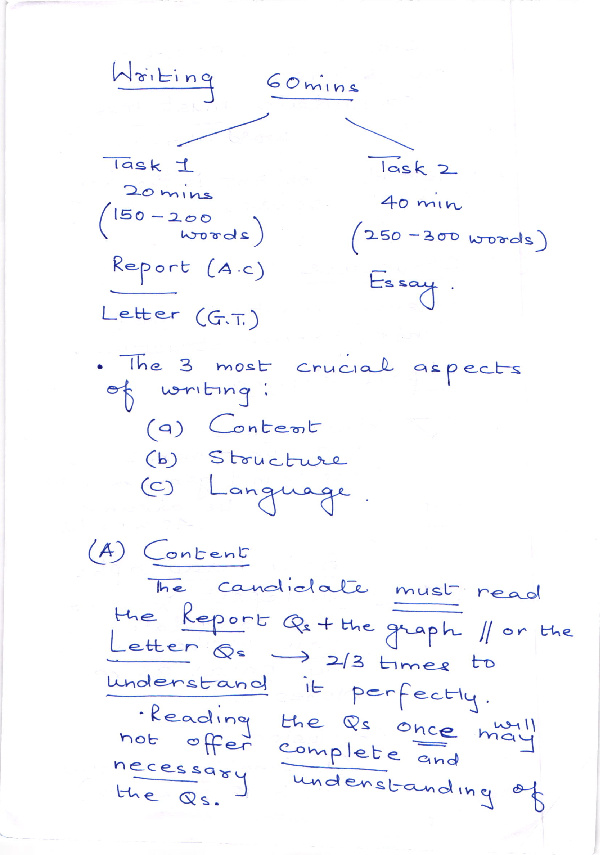 Writing 60mins
Task 1 Task 2
20 mins 40 min
(150-200 words) (250-300 words)
Report (A.C) Essay.
Letter (G.T.)
• The 3 most crucial aspects
of writing:
(a) Content
(b) Structure
(c) Language.
(A) Content
The candidate must read
the Report Qs + the graph // or the
Letter Qs → 2/3 times to
understand it perfectly.
• Reading the Qs once may will
not offer complete and
necessary understanding of
the Qs.